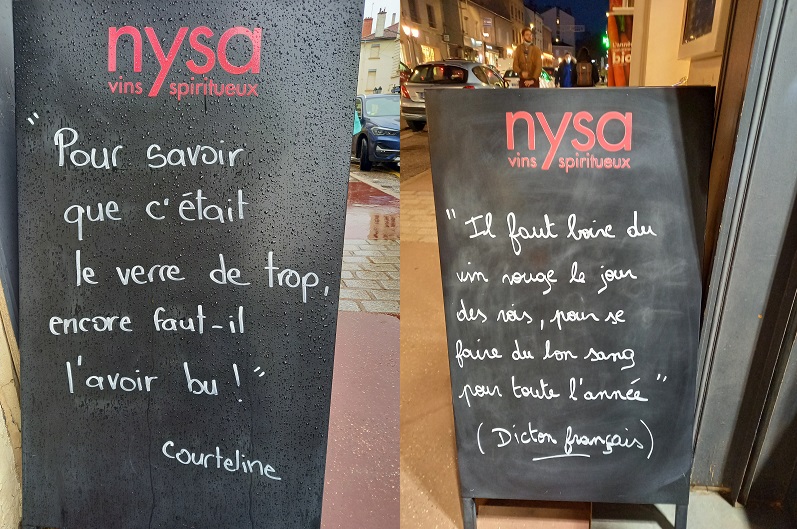 nysa
vins spiritueux
"Pour savoir
que c'était
le verre de trop,
encore faut-il
l'avoir bu !"
Courteline
nysa
vins spiritueux
"Il faut boire du
vin rouge le jour
des rois, pour se
faire du bon sang
pour toute l'année"
(Dicton français)
l'année
bio